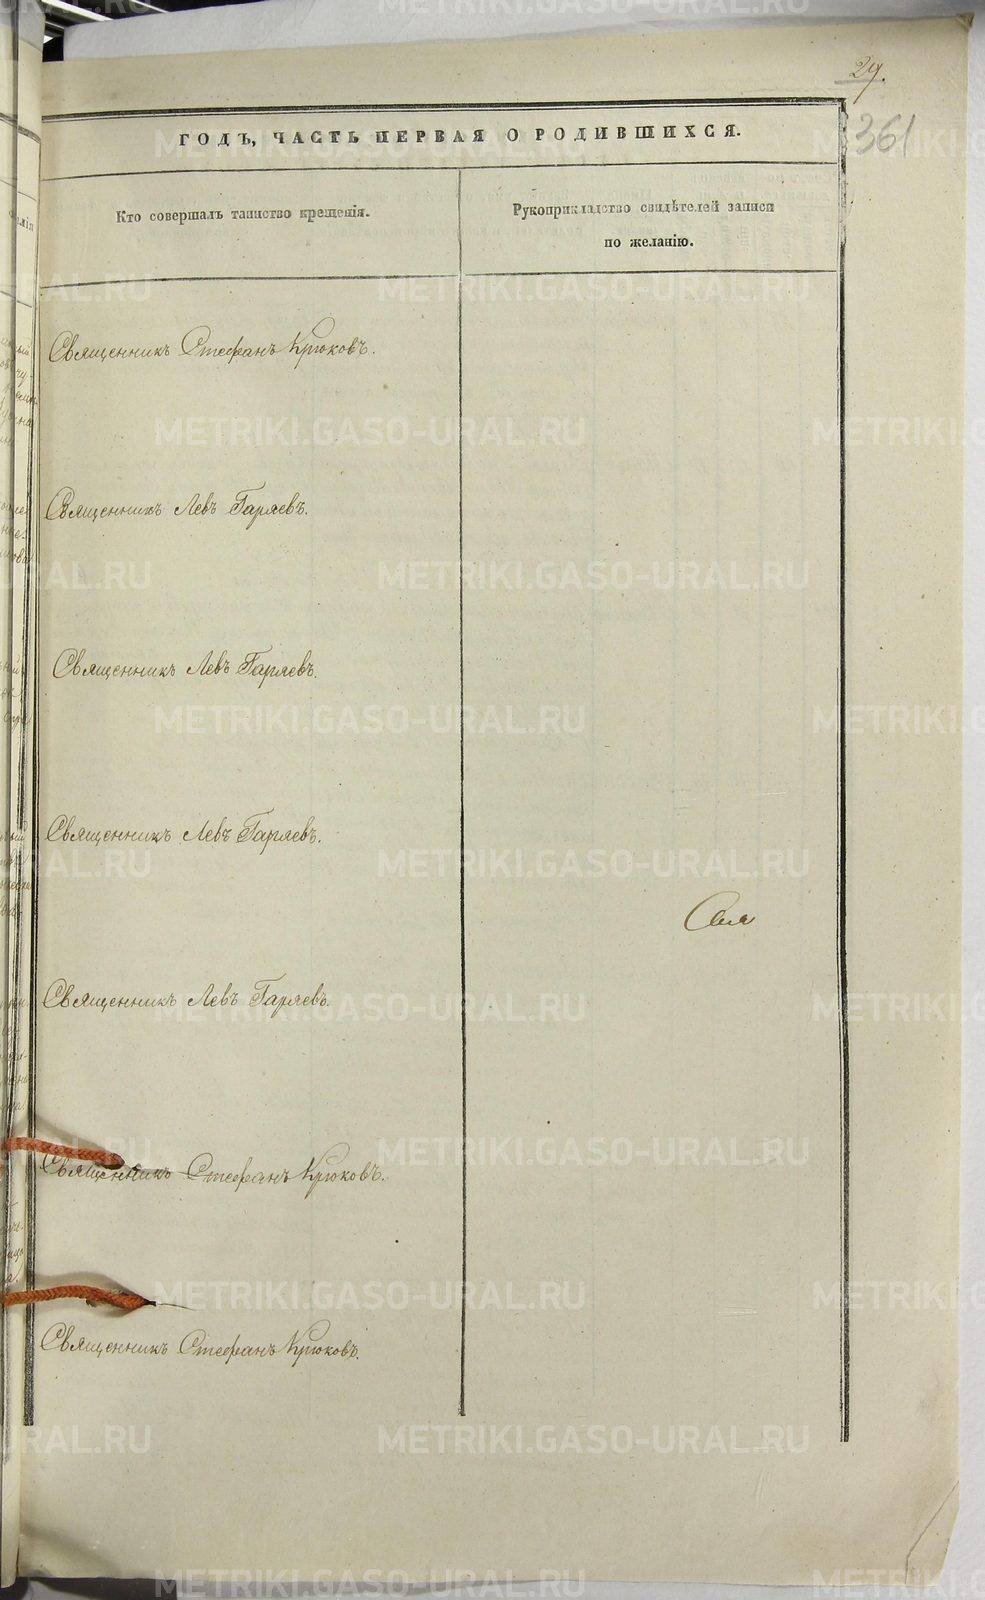 29.
361
ГОДЪ, ЧАСТЬ ПЕРВАЯ О РОДИВШИХСЯ.
Кто совершалъ таинство крещенія.
Рукоприкладство свидѣтелей записи
по желанію.
Священникъ Стефанъ Крюковъ.
Священникъ Левъ Гаряевъ.
Священникъ Левъ Гаряевъ.
Священникъ Левъ Гаряевъ.
Священникъ Левъ Гаряевъ.
Священникъ Стефанъ Крюковъ.
Священникъ Стефанъ Крюковъ.
METRIKI.GASO-URAL.RU